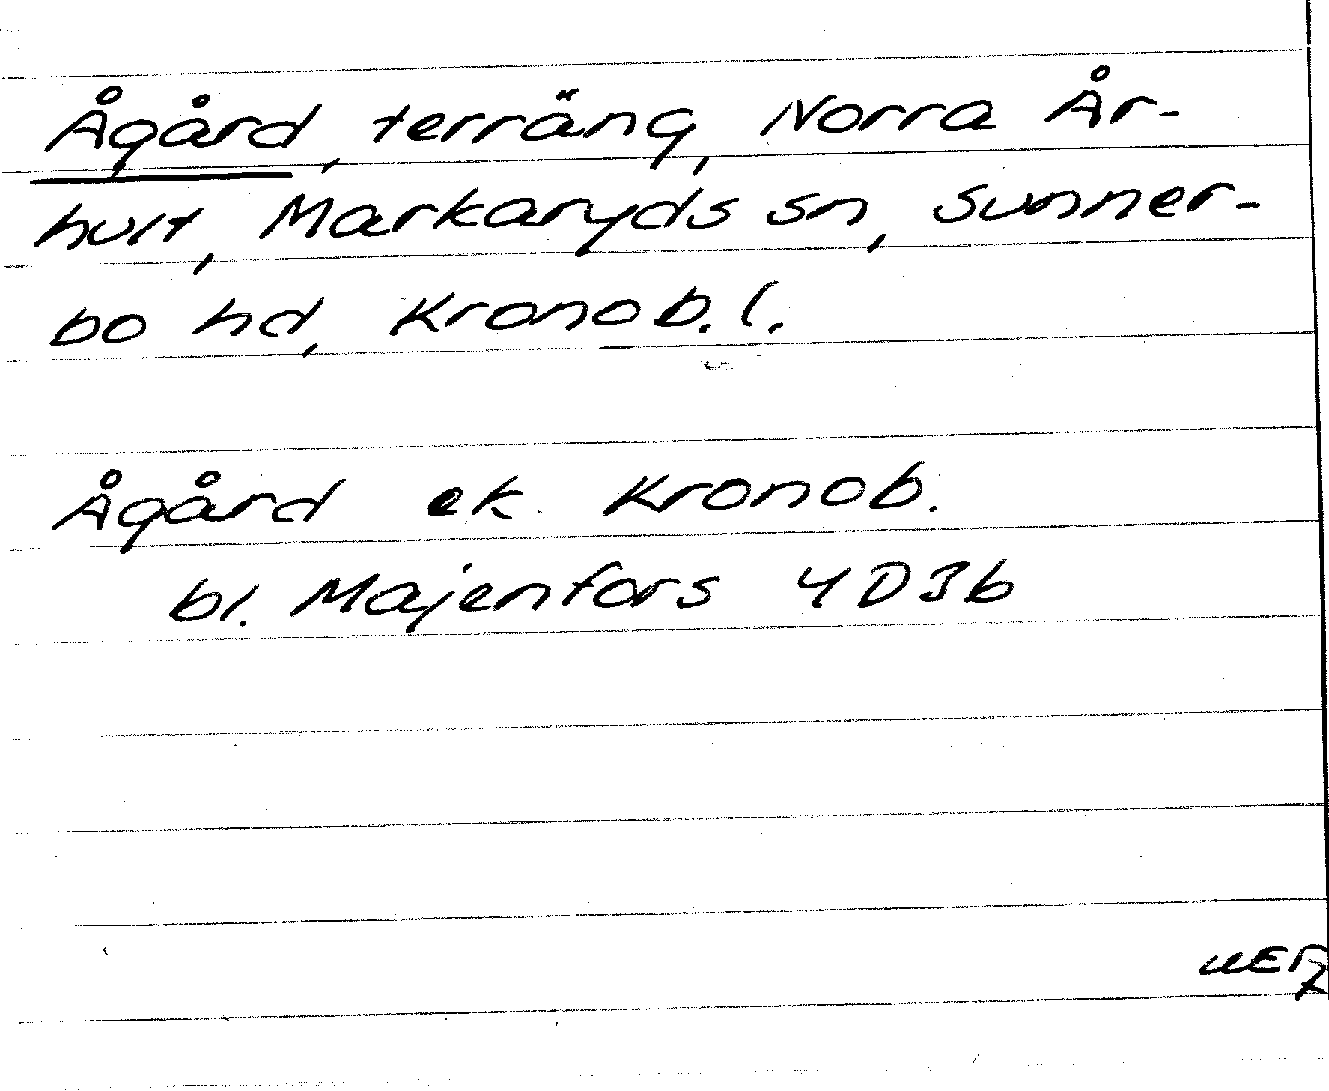 Ågård, terräng, Norra År-
hult, Markaryds sn, Sunner-
bo hd, Kronob. l.
Ågård ek. Kronob.
bl. Majenfors 4D3b